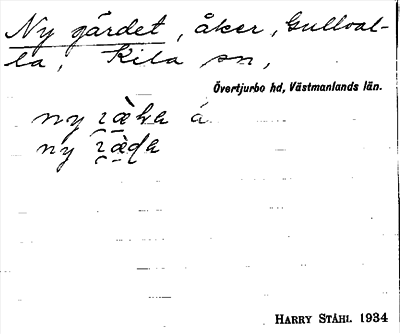 Ny gärdet, åker, Gulloal-
la, Kila sn,
Övertjurbo hd, Västmanlands län.
ny
ny
HARRY STÅHL 1934